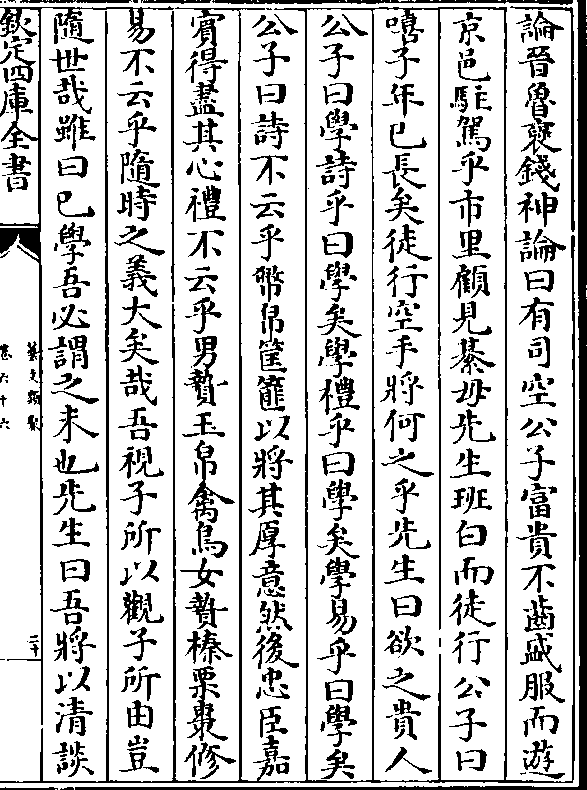 論晉魯襃錢神論曰有司空公子富貴不齒盛服而遊
京邑駐駕乎市里顧見綦毋先生班白而徒行公子曰
嘻子年已長矣徒行空手將何之乎先生曰欲之貴人
公子曰學詩乎曰學矣學禮乎曰學矣學易乎曰學矣
公子曰詩不云乎幣帛筐篚以將其厚意然後忠臣嘉
賓得盡其心禮不云乎男贄玉帛禽鳥女贄榛栗棗修
易不云乎隨時之義大矣哉吾視子所以觀子所由豈
隨世哉雖曰已學吾必謂之未也先生曰吾將以清談
欽定四庫全書
藝文類聚
卷六十六
二十